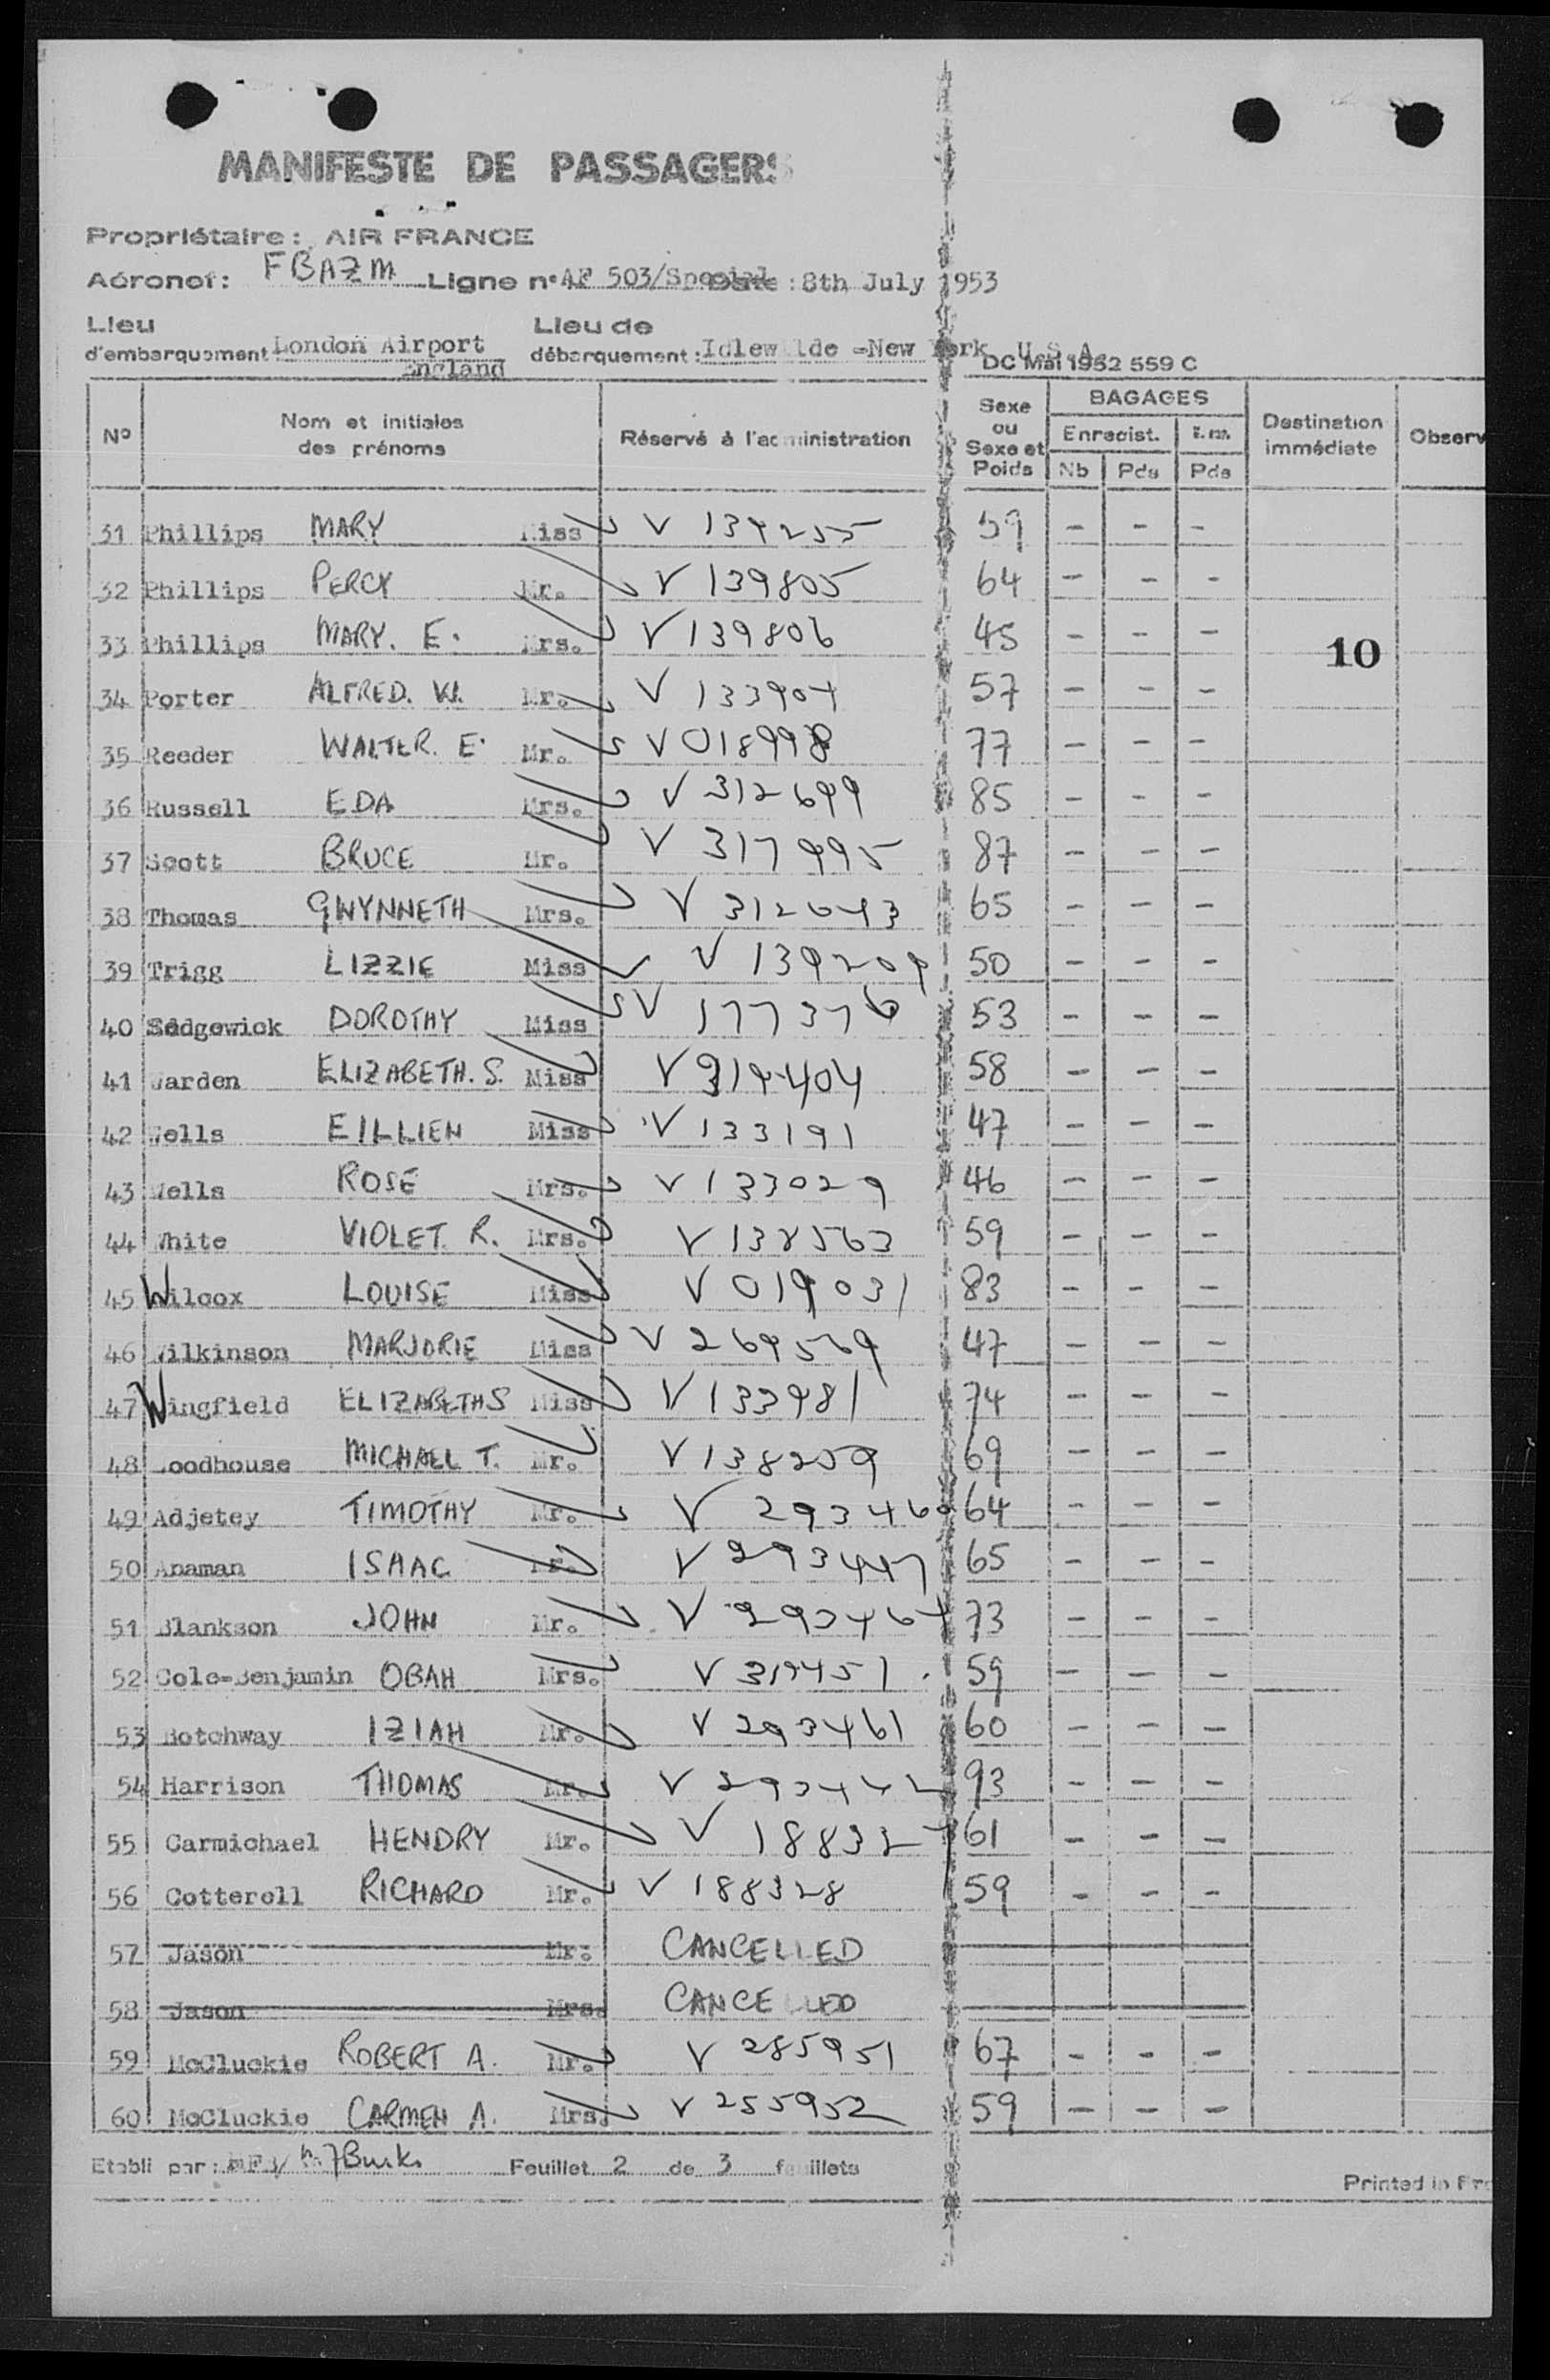 MANIFESTE DE PASSAGERS
Propriétaire : AIR FRANCE
Aéronef : FBAZM Ligne n° AF 503/Special Date : 8th July 1953
Lieu d'embarquement London Airport England Lieu de débarquement : Idlewilde -New York U.S.A.
DC Mai 1952 559 C
N° Nom et initiales des prénoms Réservé à l'administration Sexe ou Sexe et Poids BAGAGES Enregist. Nb Pds Pds Destination immédiate Observ
31 Phillips MARY Miss V 134255 59 - - -
32 Phillips PERCY Mr. V 139805 64 - - -
33 Phillips MARY. E. Mrs. V 139806 45 - - -
10
34 Porter ALFRED. W. Mr. V 133904 57 - - -
35 Reeder WALTER. E. Mr. V 018998 77 - - -
36 Russell EDA Mrs. V 312699 85 - - -
37 Scott BRUCE Mr. V 317995 87 - - -
38 Thomas GWYNNETH Mrs. V 312643 65 - - -
39 Trigg LIZZIE Miss V 139209 50 - - -
40 Sedgewick DOROTHY Miss V 177376 53 - - -
41 Warden ELIZABETH. S. Miss V 319404 58 - - -
42 Wells EILLIEN Miss V 133191 47 - - -
43 Wells ROSE Mrs. V 133029 46 - - -
44 White VIOLET R. Mrs. V 138563 59 - - -
45 Wilcox LOUISE Miss V 019031 83 - - -
46 Wilkinson MARJORIE Miss V 269569 47 - - -
47 Wingfield ELIZABETH S Miss V 133981 74 - - -
48 Woodhouse MICHAEL T. Mr. V 138259 69 - - -
49 Adjetey TIMOTHY Mr. V 293460 64 - - -
50 Anaman ISAAC Mr. V 293447 65 - - -
51 Blankson JOHN Mr. V 293464 73 - - -
52 Cole-Benjamin OBAH Mrs. V 319451 59 - - -
53 Botchway IZIAH Mr. V 293461 60 - - -
54 Harrison THOMAS Mr. V 293442 93 - - -
55 Carmichael HENDRY Mr. V 188327 61 - - -
56 Cotterell RICHARD Mr. V 188328 59 - - -
57 Jason Mr. CANCELLED
58 Jason Mrs. CANCELLED
59 McCluckie ROBERT A. Mr. V 285951 67 - - -
60 McCluckie CARMEN A. Mrs. V 255952 59 - - -
Etabli par : Feuillet 2 de 3 feuillets
Printed in Fra